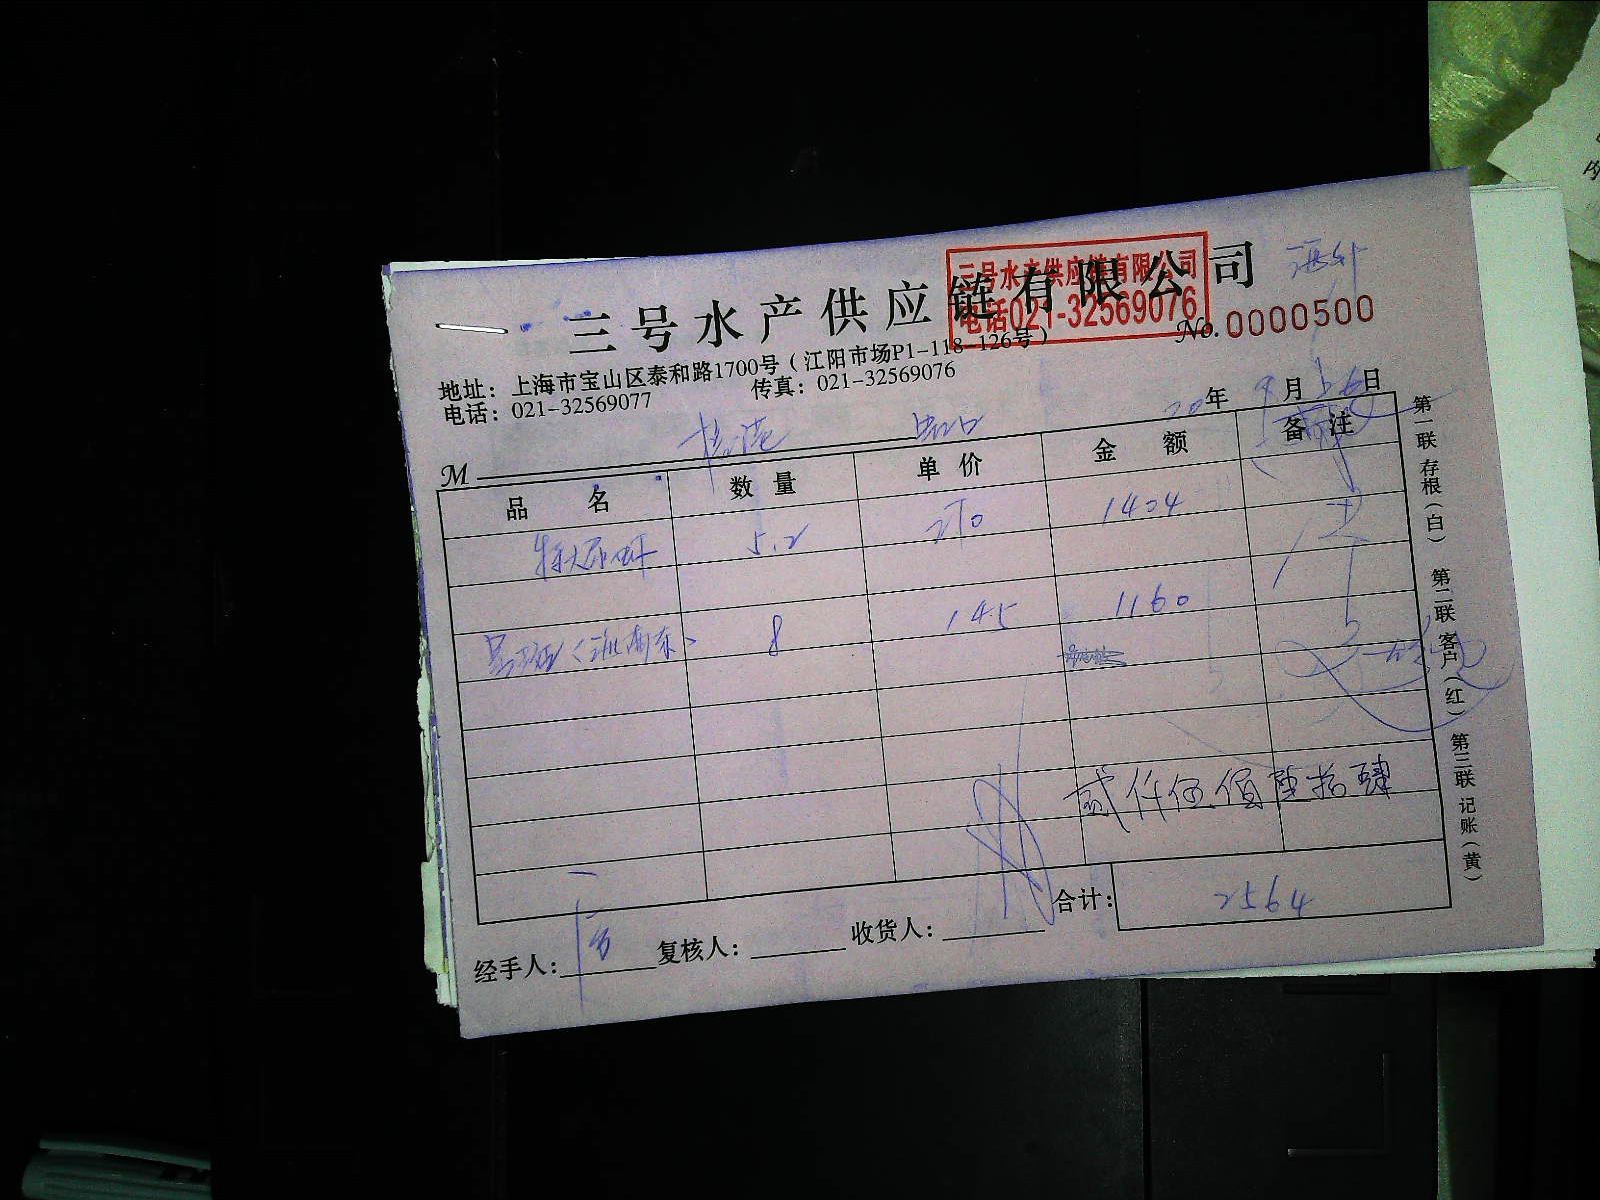 三号水产供应链有限公司
三号水产供应链有限公司
电话021-32569076
No. 0000500
地址：上海市宝山区泰和路1700号（江阳市场P1-118-126号）
电话：021-32569077 传真：021-32569076
20年9月26日
M
品名 数量 单价 金额 备注
特大尿虾 5.2 270 1404
8 145 1160
贰仟伍佰陆拾肆
合计：2564
经手人： 复核人： 收货人：
第一联 存根（白） 第二联 客户（红） 第三联 记账（黄）